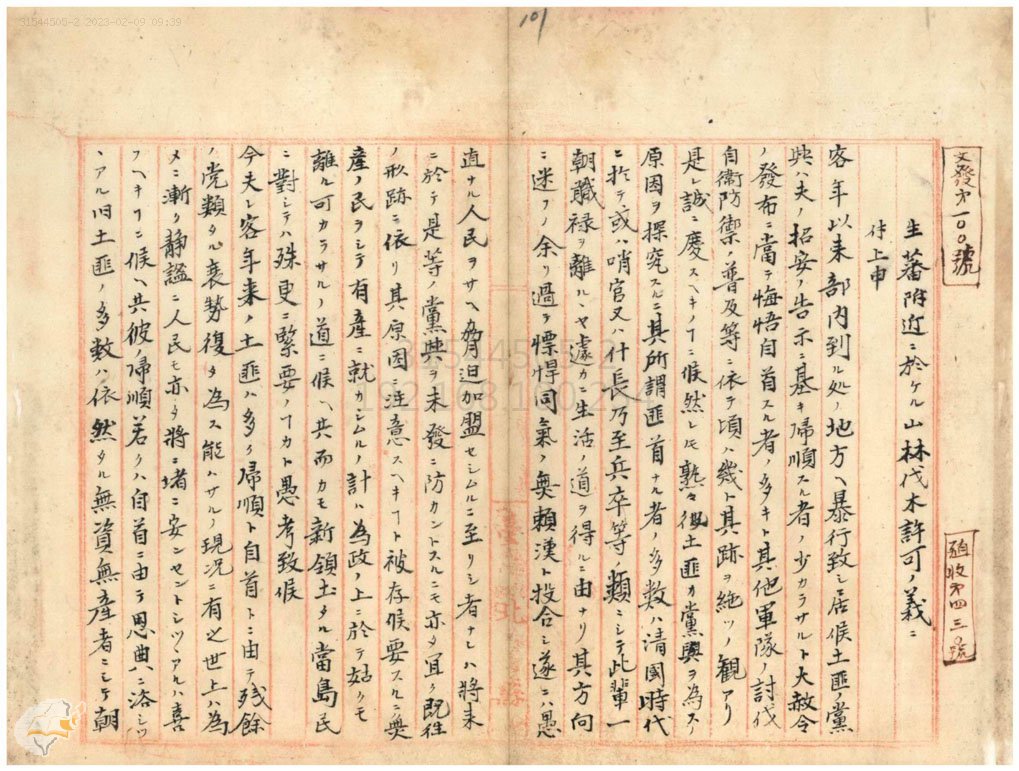 31544505-2 2023-02-09 09:39
101
文發第一〇〇號
殖收第四三〇號
生蕃附近ニ於ケル山林伐木許可ノ義ニ
付上申
客年以来部内到ル処ノ地方ヘ暴行致シ居候土匪ノ黨
與ハ夫ノ招安ノ告示ニ基キ帰順スル者ノ少カラサルト大赦令
ノ發布ニ當テ悔悟自首スル者ノ多キト其他軍隊ノ討伐
自衛防禦ノ普及等ニ依テ頃ハ幾ト其跡ヲ絶ツノ観アリ
是レ誠ニ慶スヘキヿニ候然レモ熟々彼土匪カ黨與ヲ為スノ
原因ヲ探究スルニ其所謂匪首ナル者ノ多数ハ清國時代
ニ於テ或ハ哨官又ハ什長乃至兵卒等ノ類ニシテ此輩一
朝職禄ヲ離ルヽヤ遽カニ生活ノ道ヲ得ルニ由ナリ其方向
ニ迷フノ余リ過テ慓悍同氣ノ無頼漢ト投合シ遂ニハ愚
直ナル人民ヲサヘ脅迫加盟セシムルニ至リシ者ナレハ將来
ニ於テ是等ノ黨與ヲ未發ニ防カントスルニモ亦タ宜ク既往
ノ形跡ニ依リ其原因ニ注意スヘキヿト被存候要スルニ無
産ノ民ヲシテ有産ニ就カシムルノ計ハ為政ノ上ニ於テ姑クモ
離ル可カラサルノ道ニ候ヘ共而カモ新領土タル當島民
ニ對シテハ殊更ニ緊要ノヿカト愚考致候
今夫レ客年来ノ土匪ハ多ク帰順ト自首トニ由テ残餘
ノ党類タル衰勢復タ為ス能ハサルノ現況ニ有之世上ハ為
メニ漸ク静謐ニ人民モ亦タ將ニ堵ニ安ンセントシツヽアルハ喜
フヘキヿニ候ヘ共彼ノ帰順若クハ自首ニ由テ恩典ニ浴シツ
ヽアル旧土匪ノ多数ハ依然タル無資無産者ニシテ朝
31544505-2